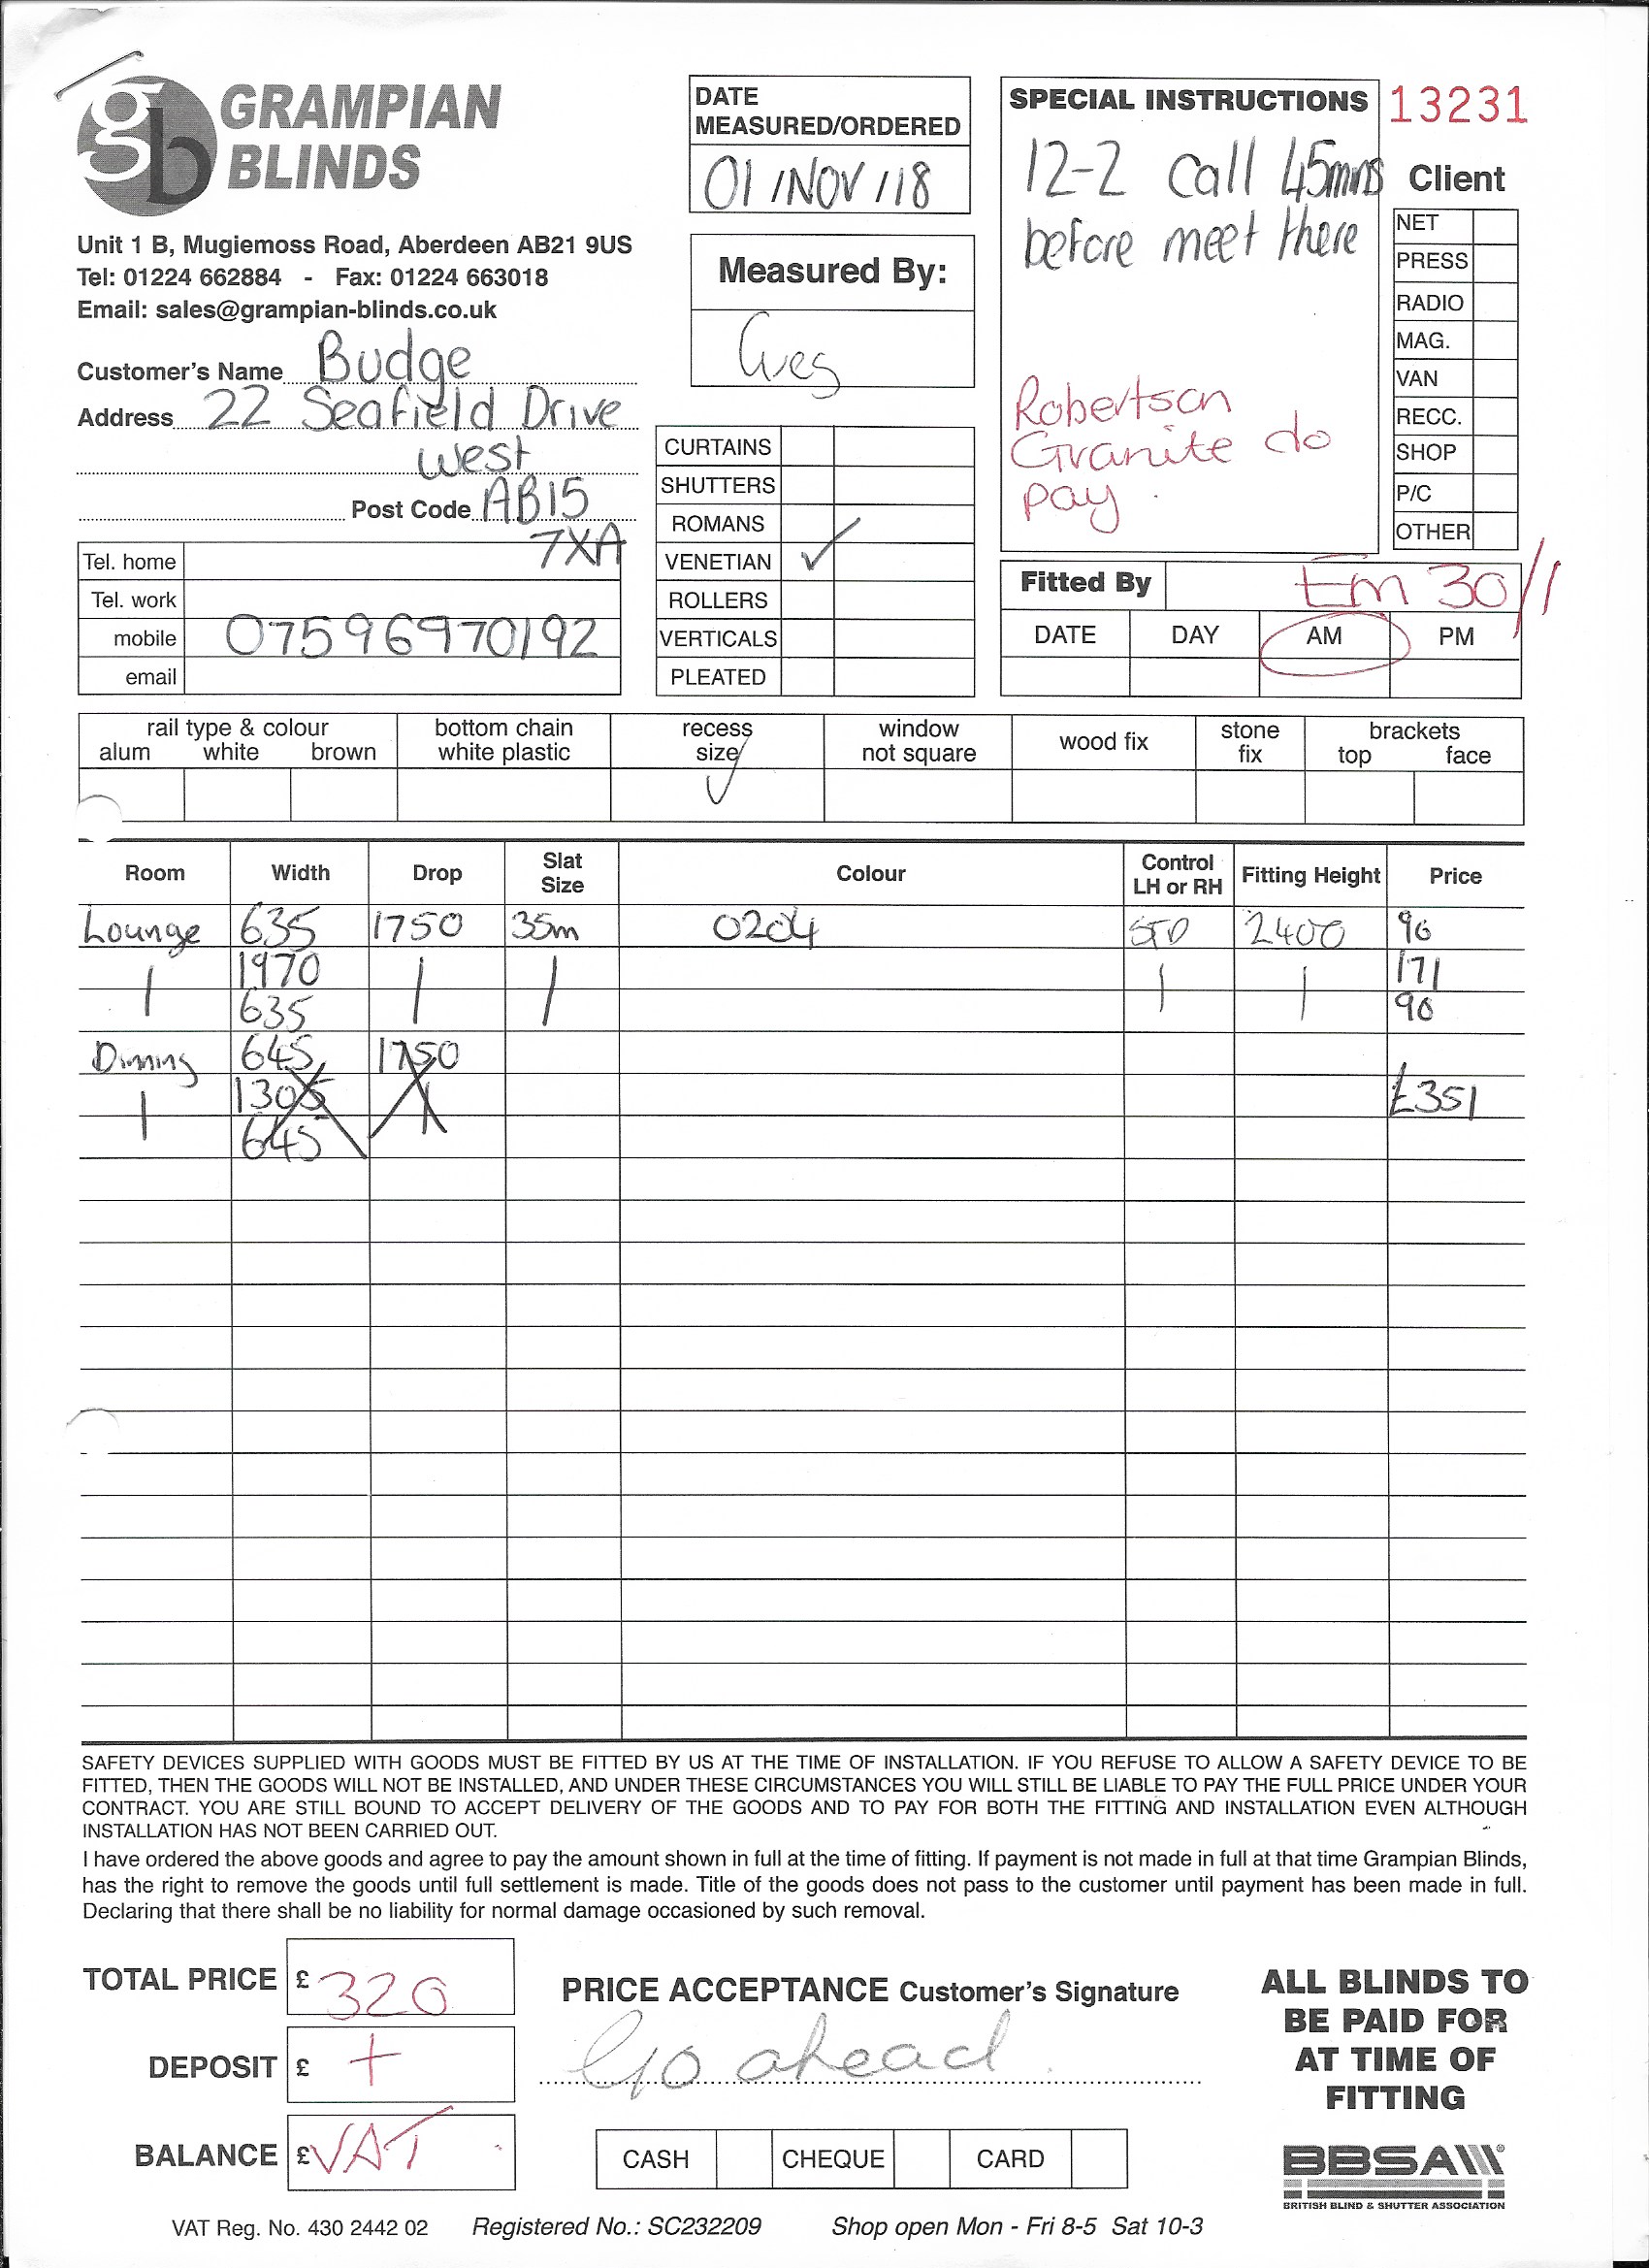 gb GRAMPIAN
BLINDS
Unit 1 B, Mugiemoss Road, Aberdeen AB21 9US
Tel: 01224 662884 - Fax: 01224 663018
Email: sales@grampian-blinds.co.uk
Customer's Name Budge
Address 22 Seafield Drive
West
Post Code AB15
7XA
Tel. home
Tel. work
mobile 07596970192
email
DATE
MEASURED/ORDERED
01/NOV/18
Measured By:
CURTAINS
SHUTTERS
ROMANS
VENETIAN ✓
ROLLERS
VERTICALS
PLEATED
SPECIAL INSTRUCTIONS
12-2 Call 45mns
before meet there
Robertson
Granite do
pay.
13231
Client
NET
PRESS
RADIO
MAG.
VAN
RECC.
SHOP
P/C
OTHER
Fitted By Em 30/1
DATE DAY AM PM
rail type & colour bottom chain recess window wood fix stone brackets
alum white brown white plastic size not square fix top face
✓
Room Width Drop Slat Size Colour Control LH or RH Fitting Height Price
Lounge 635 1750 35m 0204 STD 2400 96
1970 171
635 96
Dining 645 1750
1305 £351
645
SAFETY DEVICES SUPPLIED WITH GOODS MUST BE FITTED BY US AT THE TIME OF INSTALLATION. IF YOU REFUSE TO ALLOW A SAFETY DEVICE TO BE
FITTED, THEN THE GOODS WILL NOT BE INSTALLED, AND UNDER THESE CIRCUMSTANCES YOU WILL STILL BE LIABLE TO PAY THE FULL PRICE UNDER YOUR
CONTRACT. YOU ARE STILL BOUND TO ACCEPT DELIVERY OF THE GOODS AND TO PAY FOR BOTH THE FITTING AND INSTALLATION EVEN ALTHOUGH
INSTALLATION HAS NOT BEEN CARRIED OUT.
I have ordered the above goods and agree to pay the amount shown in full at the time of fitting. If payment is not made in full at that time Grampian Blinds,
has the right to remove the goods until full settlement is made. Title of the goods does not pass to the customer until payment has been made in full.
Declaring that there shall be no liability for normal damage occasioned by such removal.
TOTAL PRICE £ 320
DEPOSIT £ +
BALANCE £ VAT
PRICE ACCEPTANCE Customer's Signature
Go ahead.
CASH CHEQUE CARD
ALL BLINDS TO
BE PAID FOR
AT TIME OF
FITTING
BBSA
BRITISH BLIND & SHUTTER ASSOCIATION
VAT Reg. No. 430 2442 02 Registered No.: SC232209 Shop open Mon - Fri 8-5 Sat 10-3